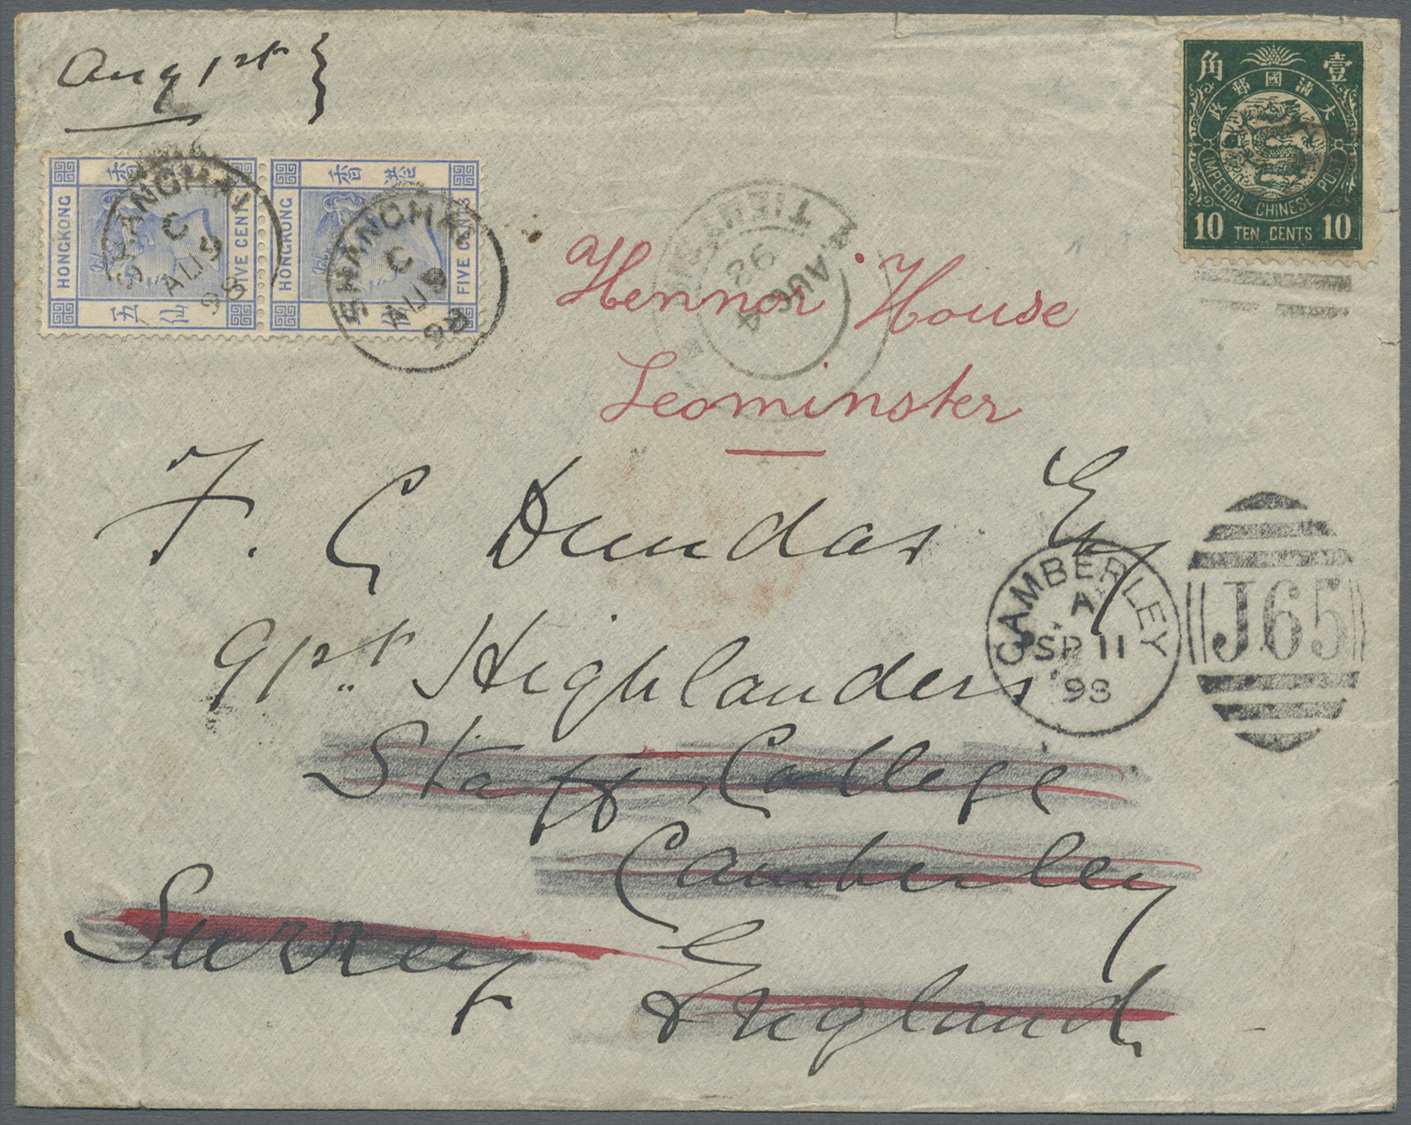 Aug 1st
角 壹
大清國郵政
IMPERIAL CHINESE POST
10 TEN CENTS 10
HONGKONG
香
FIVE CENTS
五 仙
HONGKONG
香 港
FIVE CENTS
SHANGHAI
C
AU 9
98
SHANGHAI
C
AU 9
98
TIENTSIN
4 AUG
98
Hennor House
Leominster
F. C Dundas Esq
91st Highlanders
Staff College
Camberley
Surrey England
CAMBERLEY
A
SP 11
98
J65